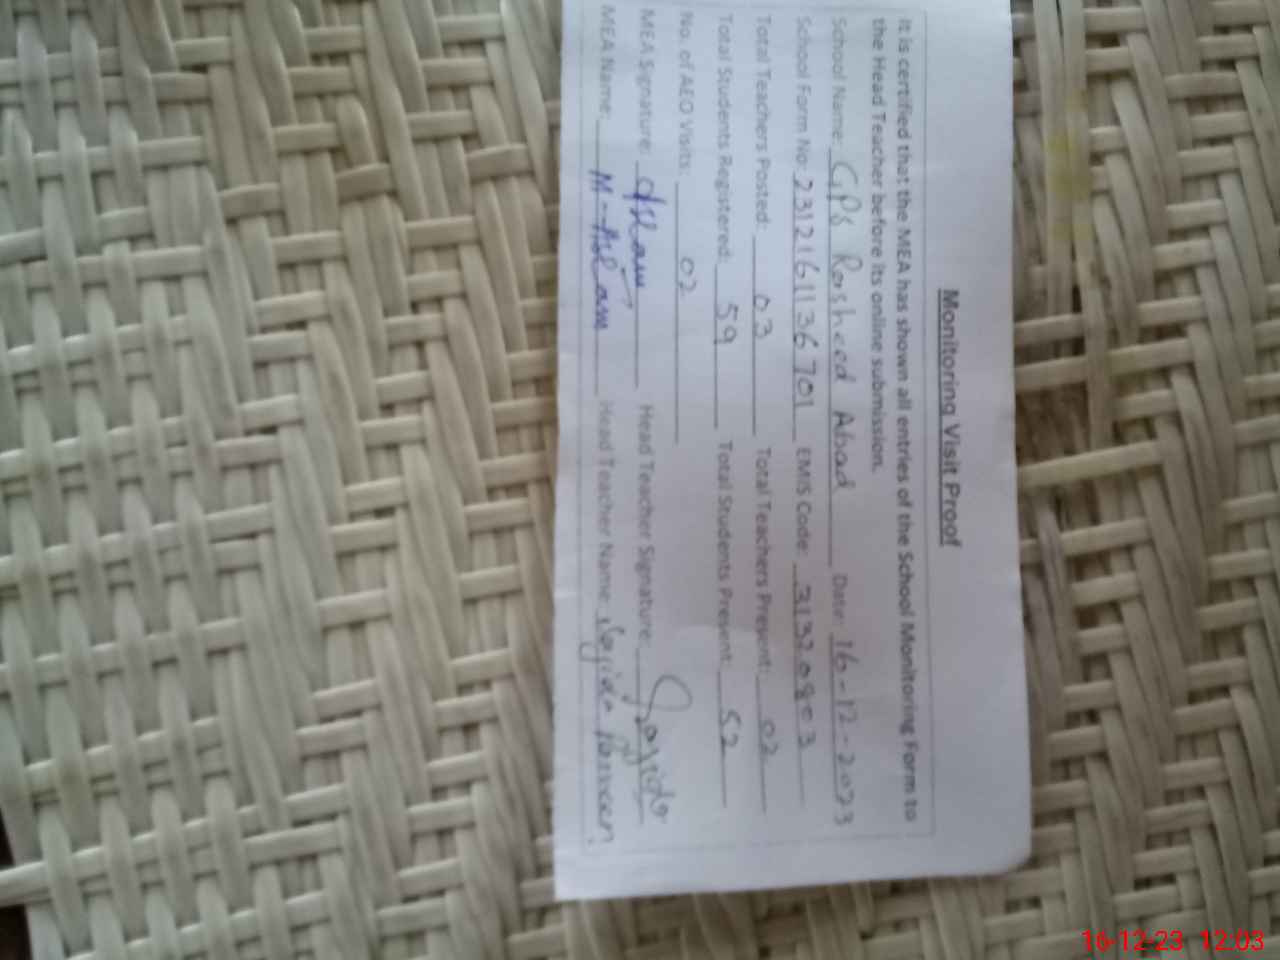 Monitoring Visit Proof
It is certified that the MEA has shown all entries of the School Monitoring Form to
the Head Teacher before its online submission.
School Name: GPS Rasheed Abad Date: 16-12-2023
School Form No: 2312161136701 EMIS Code: 31320803
Total Teachers Posted: 03 Total Teachers Present: 02
Total Students Registered: 59 Total Students Present: 52
No. of AEO Visits: 02
MEA Signature: Aslam Head Teacher Signature: Sajida
MEA Name: M-Aslam Head Teacher Name: Sajida Parveen
16-12-23 12:03